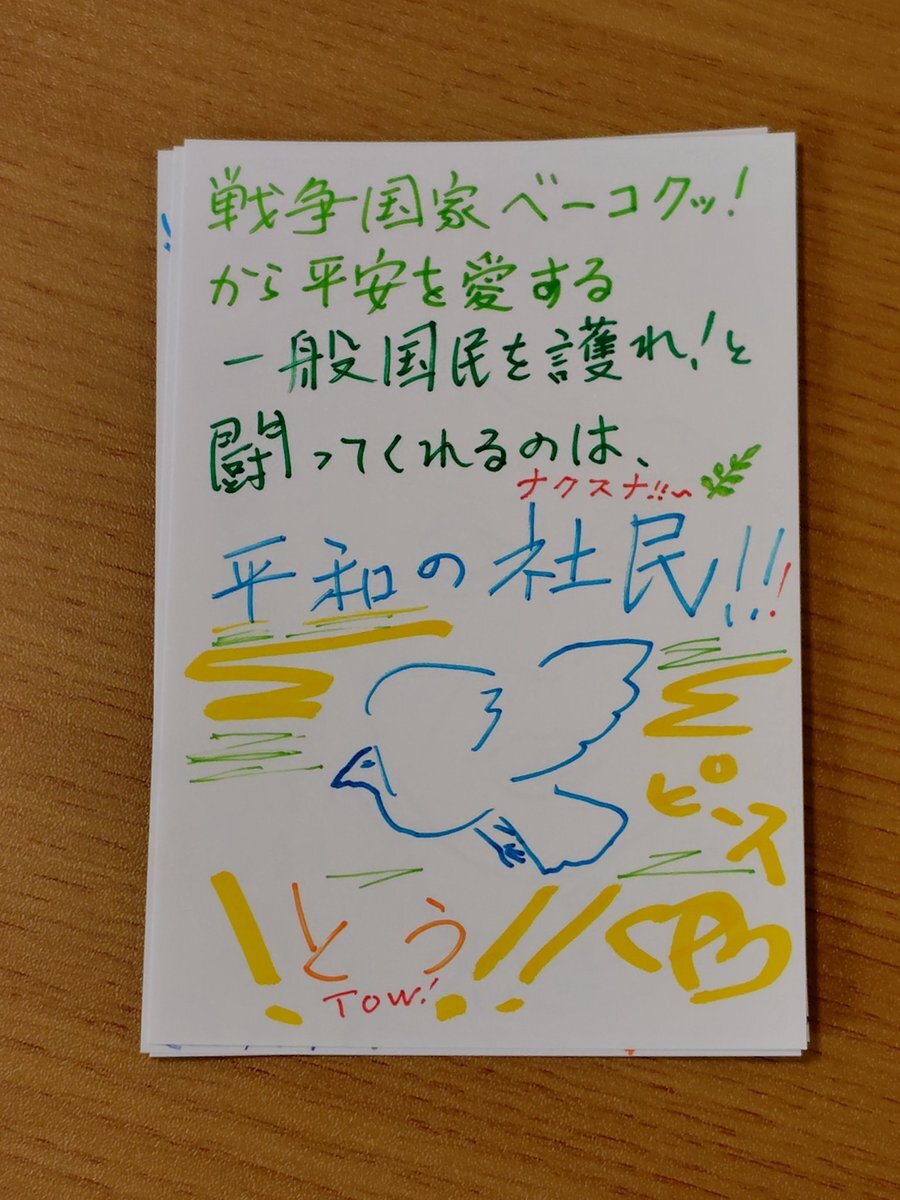 戦争国家ベーコクッ!
から平安を愛する
一般国民を護れ!と
闘ってくれるのは、
ナクスナ!!~
平和の社民!!!
ピース
!とう!!
Tow!